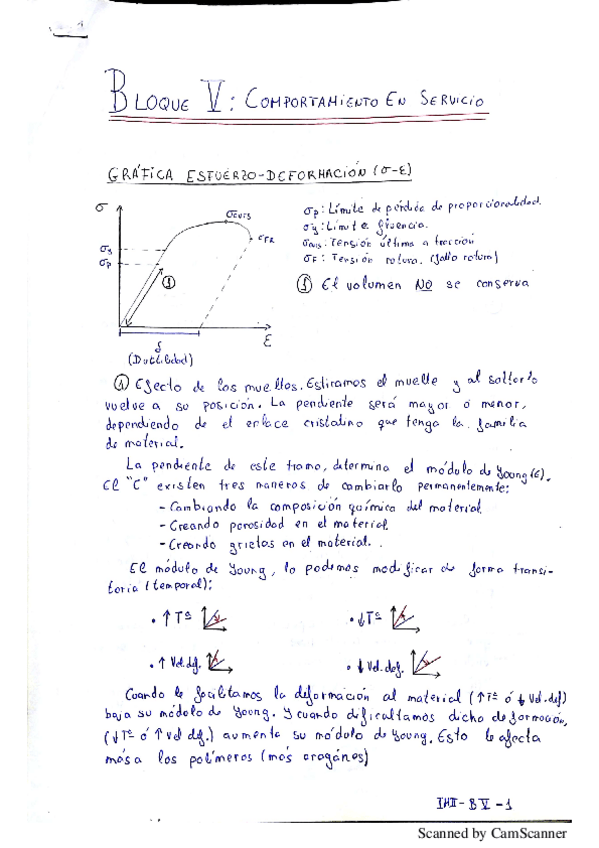 BLOQUE V: COMPORTAMIENTO EN SERVICIO
GRÁFICA ESFUERZO-DEFORMACIÓN (σ-ε)
σ
σy
σp
σUTS
σFR
①
ε
δ
(Ductilidad)
σp: Límite de pérdida de proporcionalidad.
σy: Límite fluencia.
σUTS: Tensión última a tracción
σF: Tensión rotura. (fallo rotura)
① El volumen NO se conserva
① Efecto de los muelles. Estiramos el muelle y al soltarlo
vuelve a su posición. La pendiente será mayor o menor,
dependiendo de el enlace cristalino que tenga la familia
de material.
La pendiente de este tramo, determina el módulo de Young (E).
El "E" existen tres maneras de cambiarlo permanentemente:
- Cambiando la composición química del material
- Creando porosidad en el material
- Creando grietas en el material.
El módulo de Young, lo podemos modificar de forma transi-
toria (temporal):
• ↑ Tª
• ↓ Tª
• ↑ Vel. def.
• ↓ Vel. def.
Cuando le facilitamos la deformación al material (↑Tª ó ↓ Vel. def)
baja su módulo de Young. Y cuando dificultamos dicha deformación,
(↓Tª ó ↑ vel def.) aumenta su módulo de Young. Esto le afecta
más a los polímeros (más orgánicos)
IMII-BV-1
Scanned by CamScanner